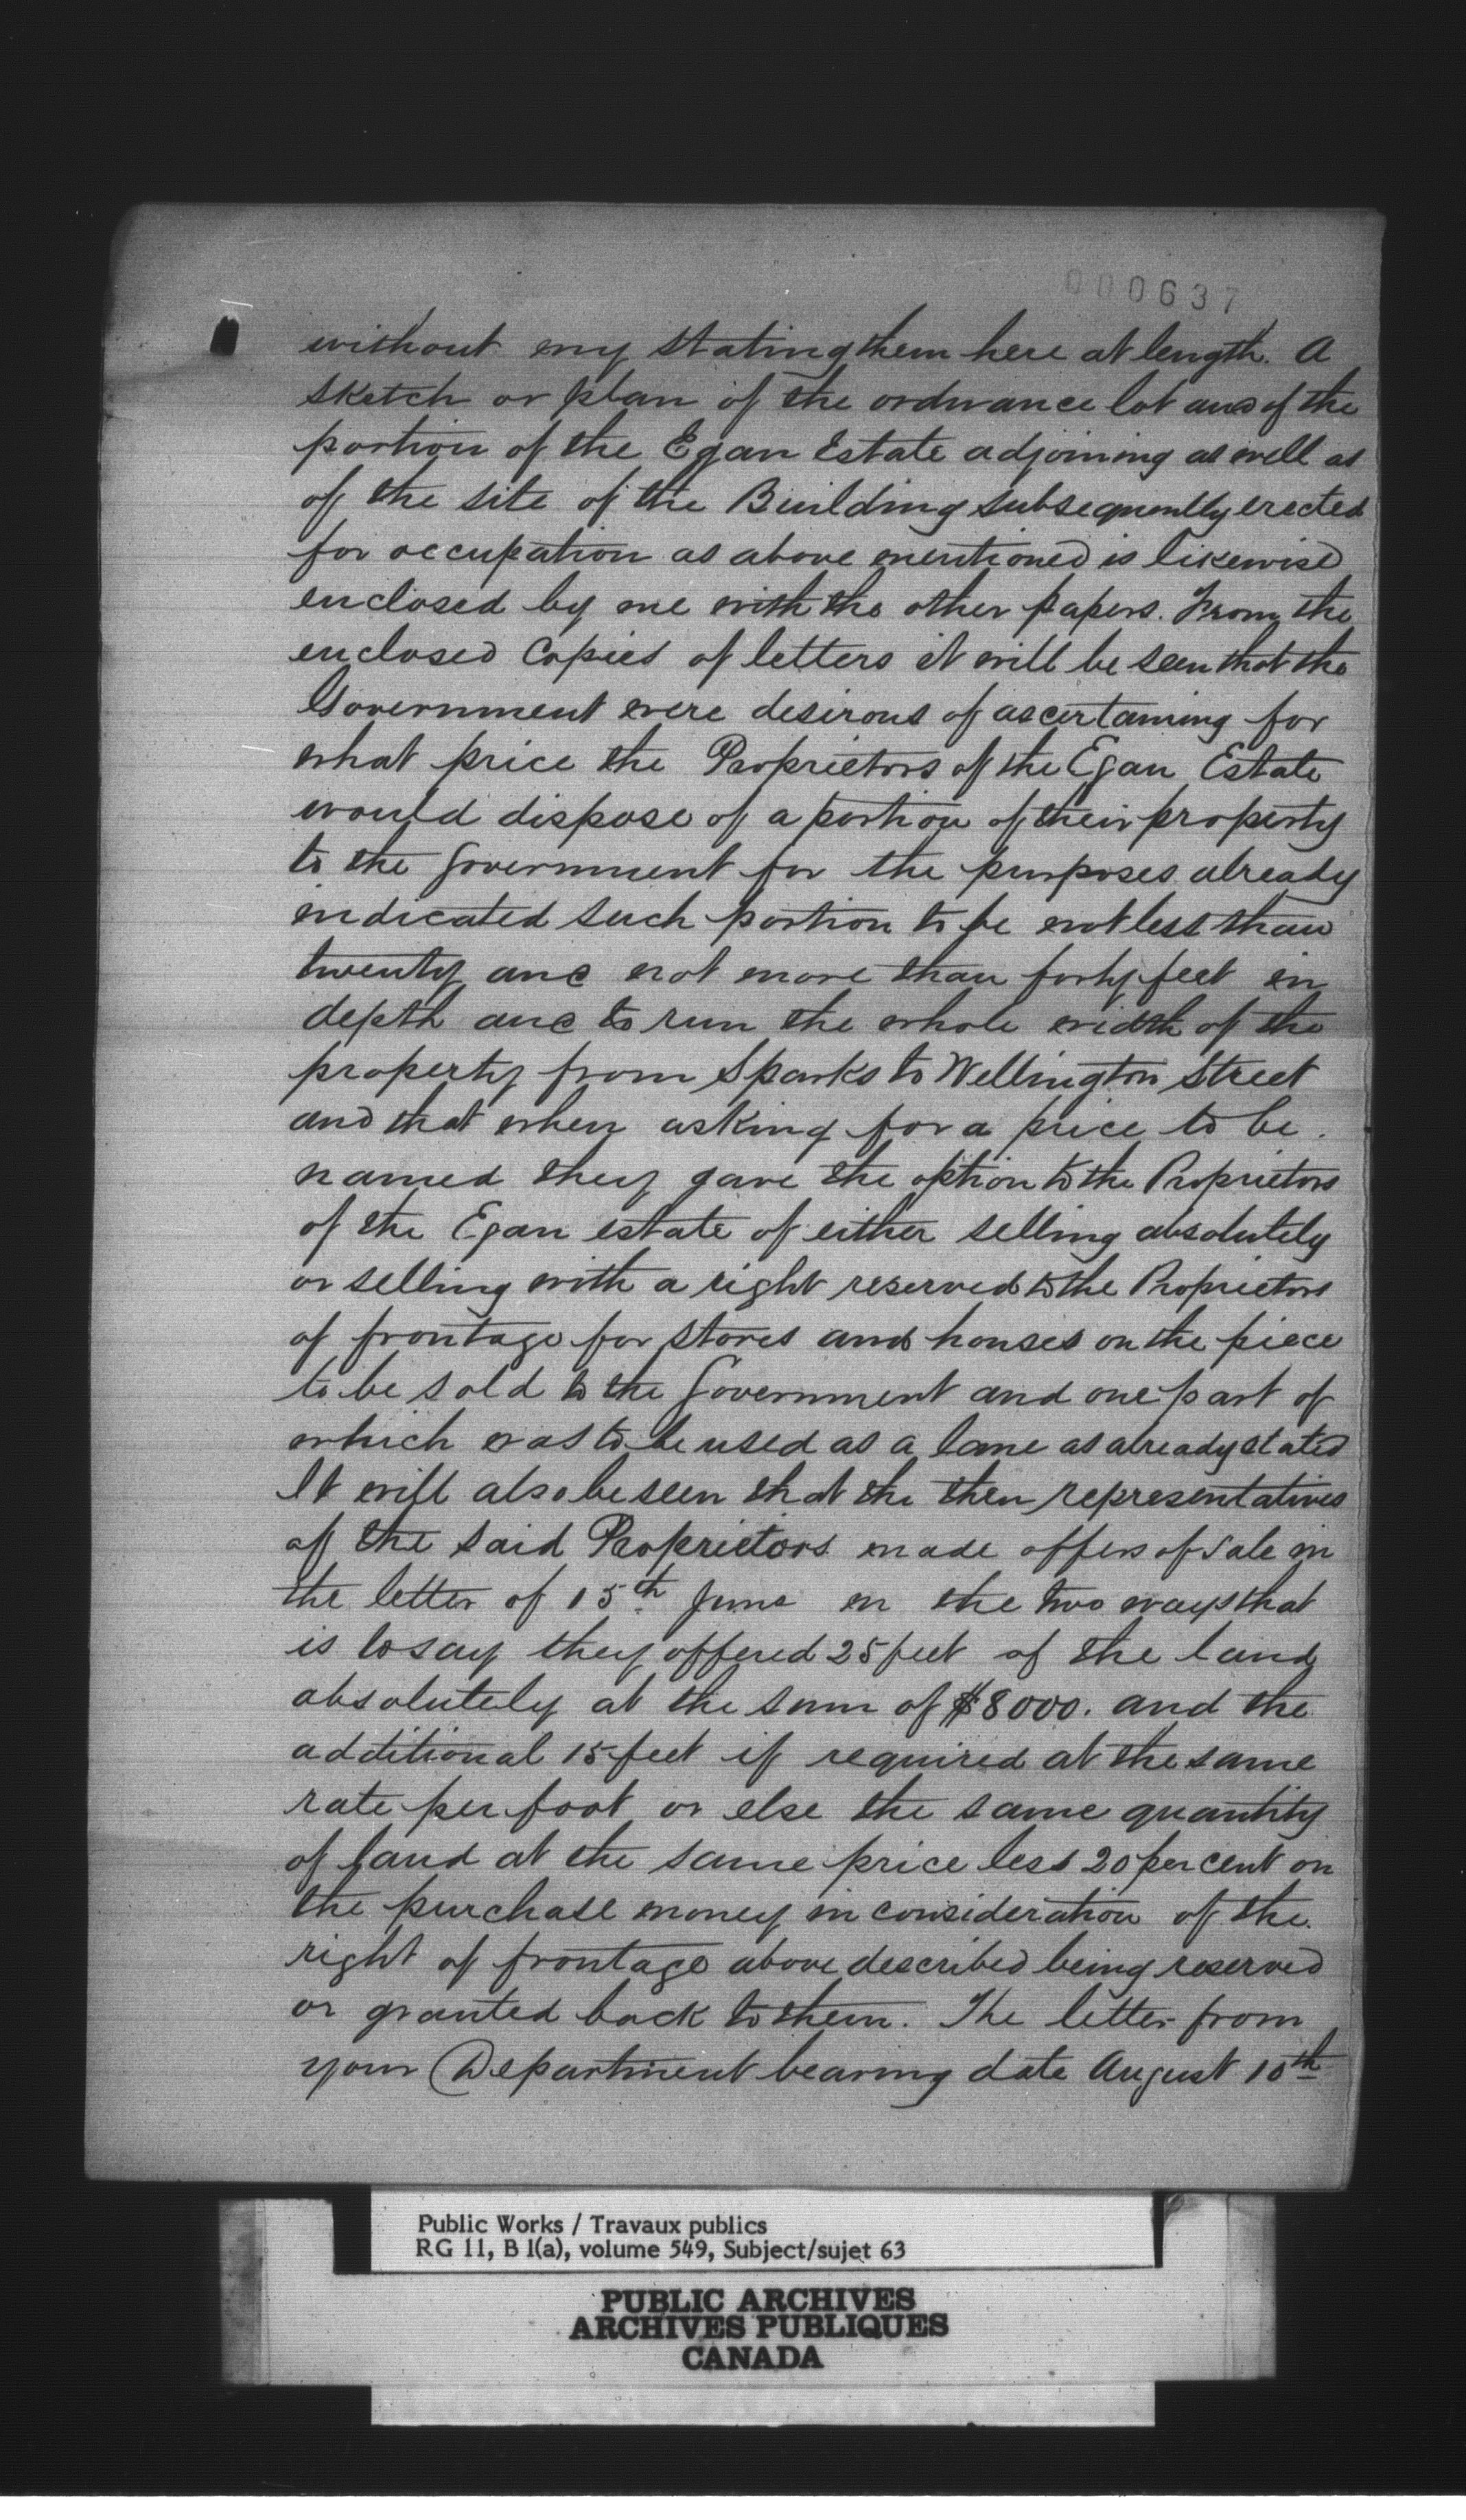 000637
without my stating them here at length. A
sketch or plan of the ordnance lot and of the
portion of the Egan Estate adjoining as well as
of the site of the Building subsequently erected
for occupation as above mentioned is likewise
enclosed by me with the other papers. From the
enclosed Copies of letters it will be seen that the
Government were desirous of ascertaining for
what price the Proprietors of the Egan Estate
would dispose of a portion of their property
to the Government for the purposes already
indicated such portion to be not less than
twenty and not more than forty feet in
depth and to run the whole width of the
property from Sparks to Wellington Street
and that when asking for a price to be
named they gave the option to the Proprietors
of the Egan estate of either selling absolutely
or selling with a right reserved to the Proprietors
of frontage for stores and houses on the piece
to be sold to the Government and one part of
which was to be used as a lane as already stated
It will also be seen that the then representatives
of the said Proprietors made offers of sale in
the letter of 15th June in the two ways that
is to say they offered 25 feet of the land
absolutely at the sum of $8000. and the
additional 15 feet if required at the same
rate per foot or else the same quantity
of land at the same price less 20 per cent on
the purchase money in consideration of the
right of frontage above described being reserved
or granted back to them. The letter from
your Department bearing date August 10th
Public Works / Travaux publics
RG 11, B 1(a), volume 549, Subject/sujet 63
PUBLIC ARCHIVES
ARCHIVES PUBLIQUES
CANADA